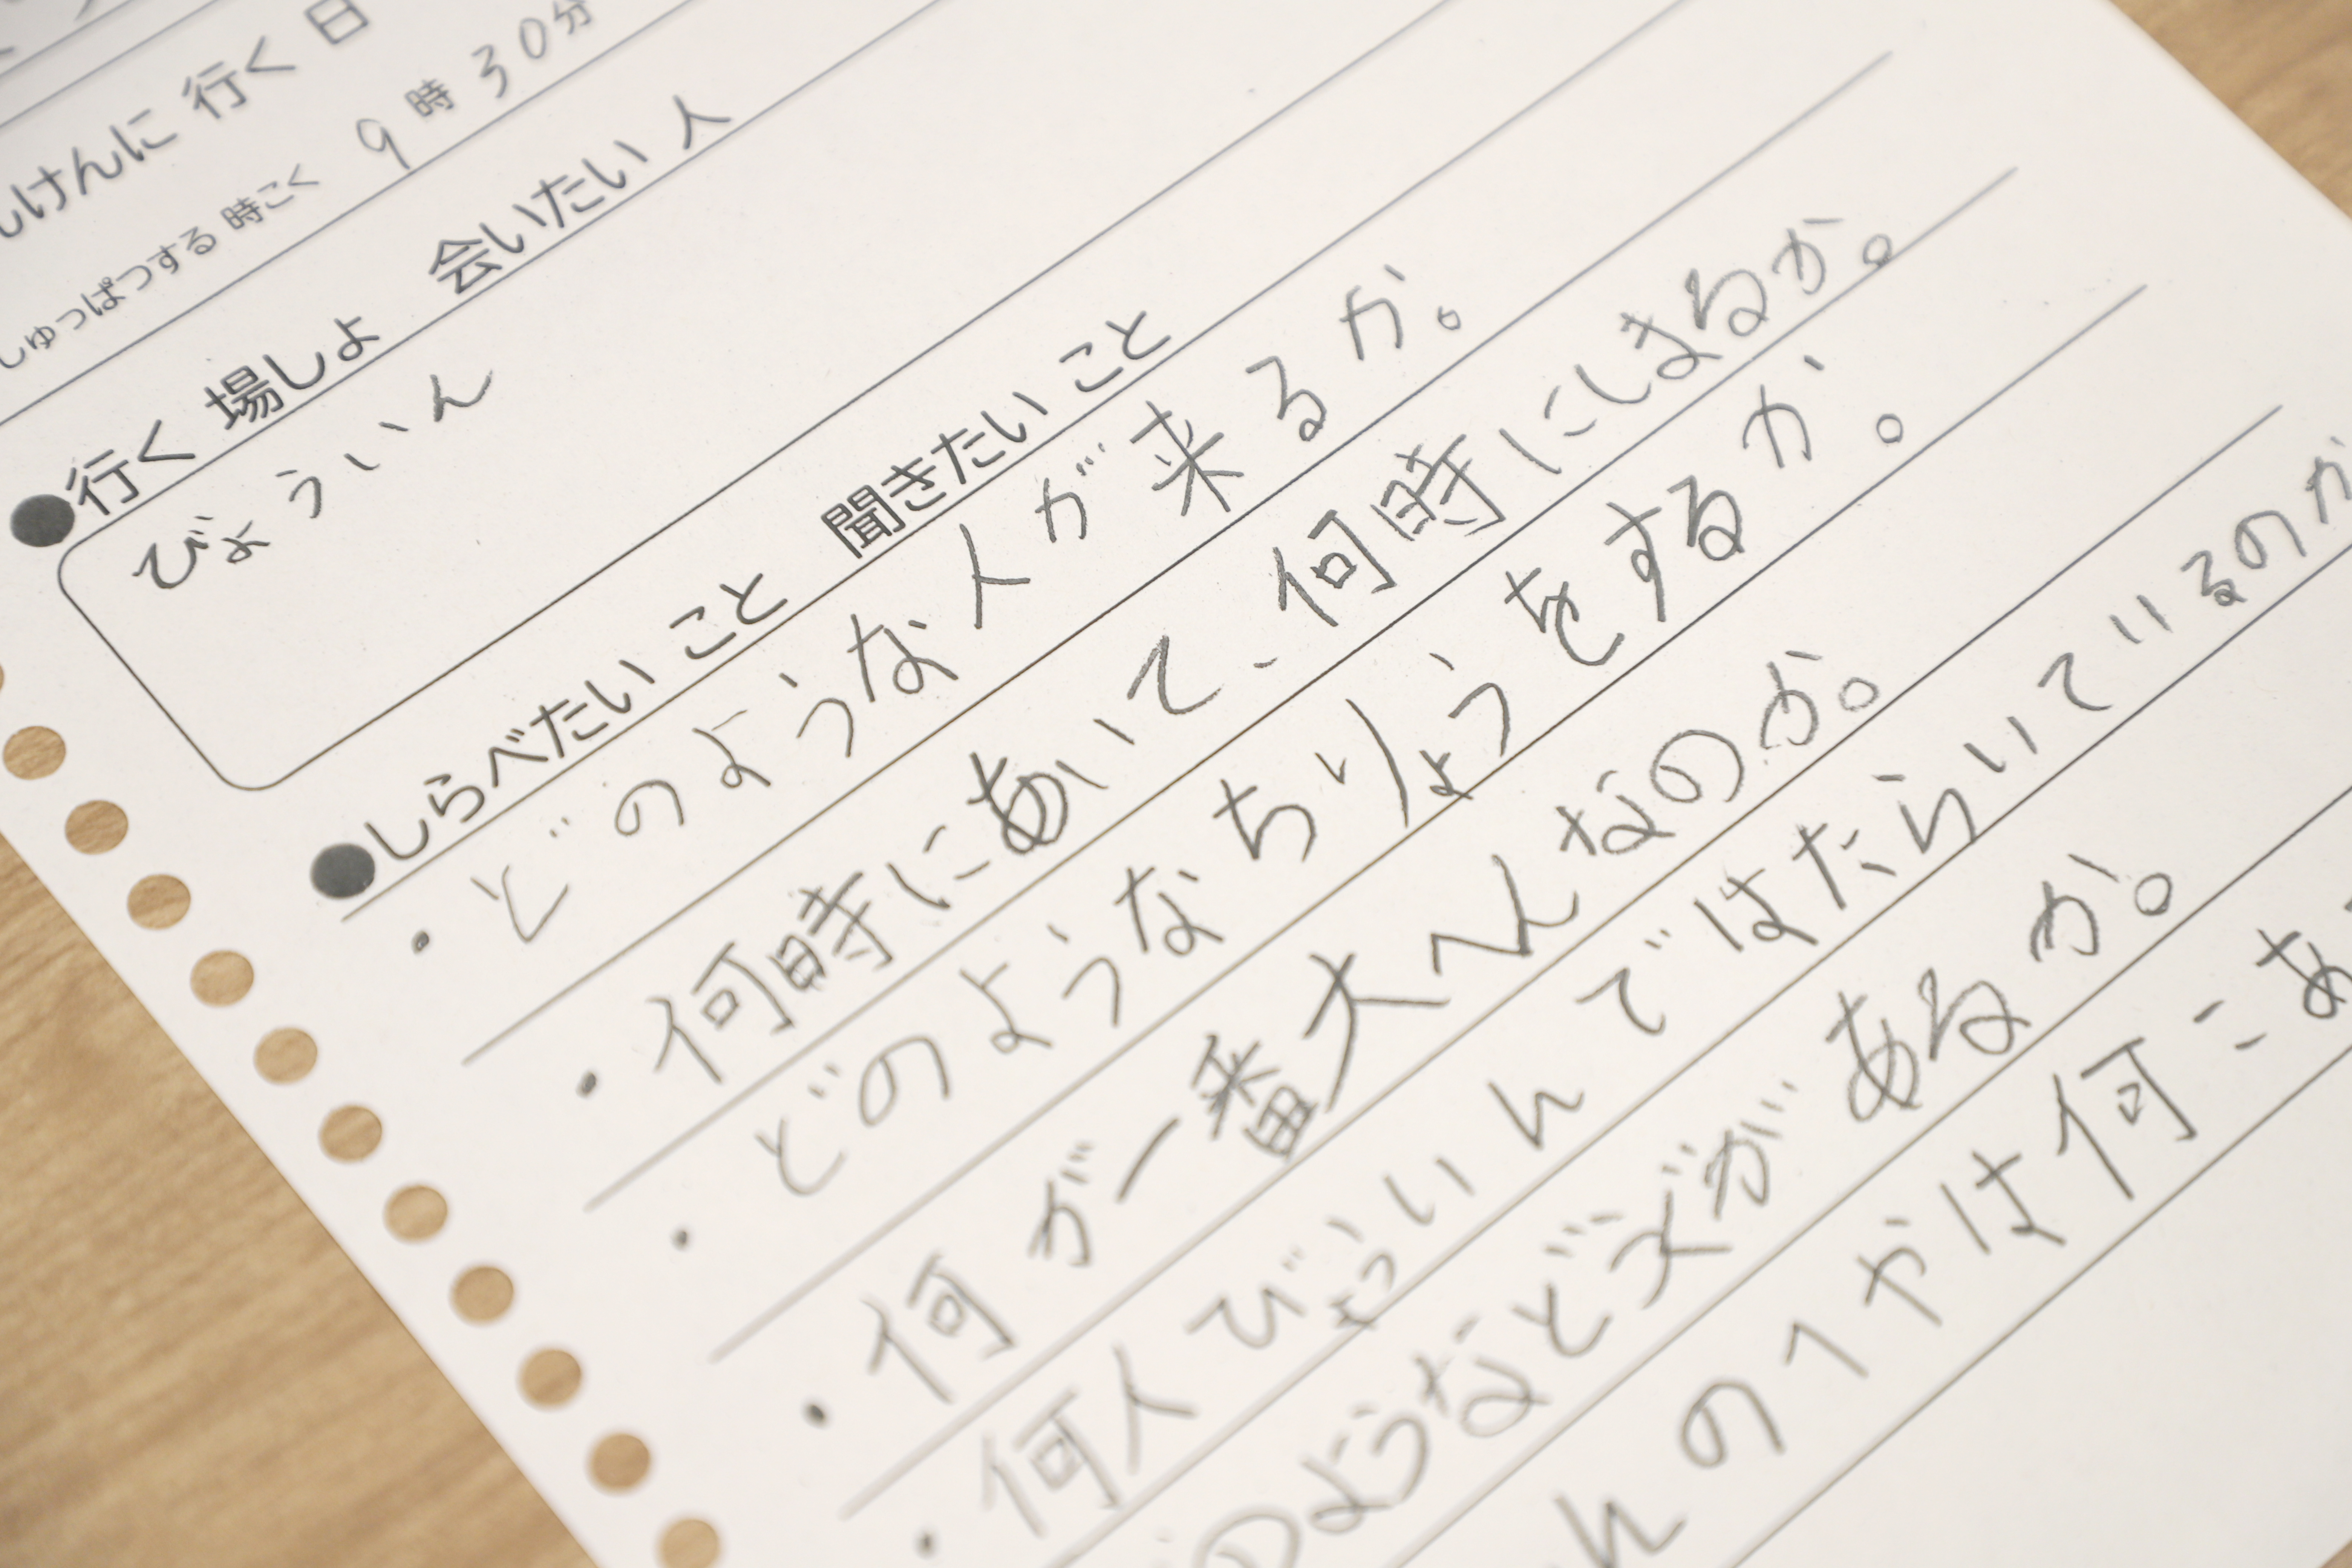 けんに 行く 日
しゅっぱつする 時こく 9時30分
●行く 場しょ 会いたい 人
びょういん
●しらべたい こと 聞きたい こと
・どのような人が来るか。
・何時にあいて、何時にしまるか。
・どのようなちりょうをするか。
・何が一番大へんなのか。
・何人びょういんではたらいているのか
のようなどうぐがあるか。
んの1かは何こあ